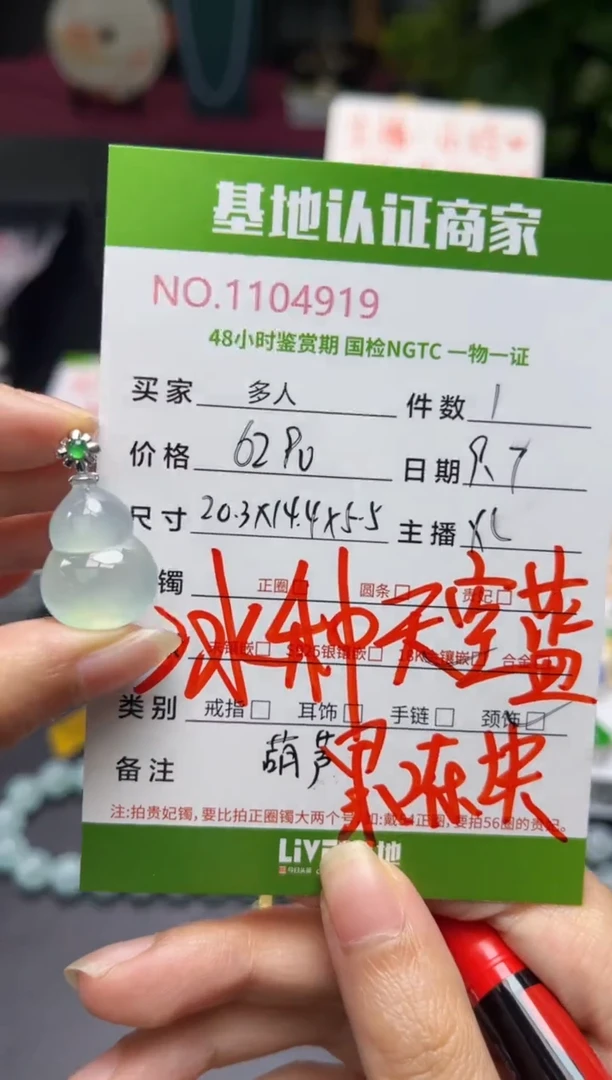 基地认证商家
NO.1104919
48小时鉴赏期 国检NGTC 一物一证
买家 多人 件数 1
价格 6280 日期 9.7
尺寸 20.3X14.4X5.5 主播 XL
镯 正圈 圆条 贵妃
冰种天空蓝
类别 戒指 耳饰 手链 颈饰
备注 葫芦
果冻块
注:拍贵妃镯,要比拍正圈镯大两个号,如:戴54正圈,要拍56圈的贵妃。
LIVE 基地